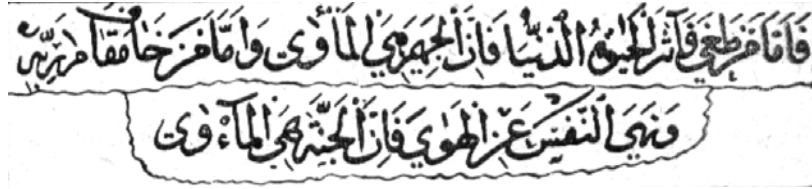 فَأَمَّا مَنْ طَغَى وَآثَرَ الْحَيٰوةَ الدُّنْيَا فَإِنَّ الْجَحِيمَ هِيَ الْمَأْوٰى وَأَمَّا مَنْ خَافَ مَقَامَ رَبِّهِ
وَنَهَى النَّفْسَ عَنِ الْهَوٰى فَإِنَّ الْجَنَّةَ هِيَ الْمَأْوٰى